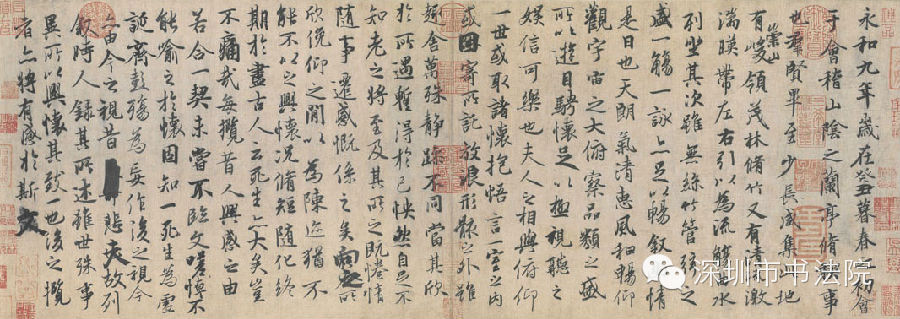 永和九年歲在癸丑暮春之初會
于會稽山陰之蘭亭脩稧事
也羣賢畢至少長咸集此地
有崇山峻領茂林脩竹又有清流激
湍暎帶左右引以為流觴曲水
列坐其次雖無絲竹管弦之
盛一觴一詠亦足以暢叙幽情
是日也天朗氣清惠風和暢仰
觀宇宙之大俯察品類之盛
所以遊目騁懷足以極視聽之
娛信可樂也夫人之相與俯仰
一世或取諸懷抱悟言一室之内
或因寄所託放浪形骸之外雖
趣舍萬殊静躁不同當其欣
於所遇蹔得於己怏然自足不
知老之將至及其所之既惓情
隨事遷感慨係之矣向之所
欣俛仰之閒以為陳迹猶不
能不以之興懷況脩短隨化終
期於盡古人云死生亦大矣豈
不痛哉每攬昔人興感之由
若合一契未嘗不臨文嗟悼不
能喻之於懷固知一死生為虛
誕齊彭殤為妄作後之視今
亦由今之視昔悲夫故列
叙時人録其所述雖世殊事
異所以興懷其致一也後之攬
者亦將有感於斯文
深圳市书法院